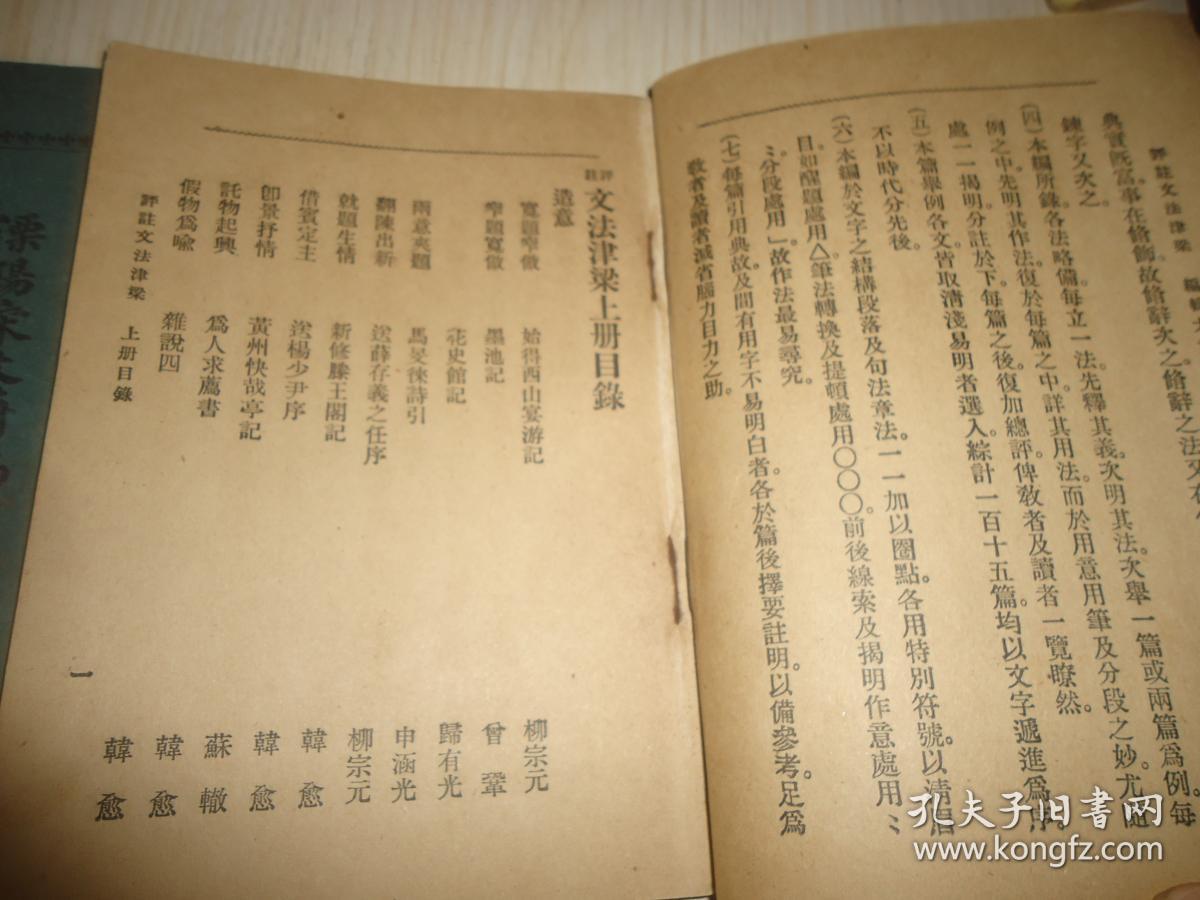 評註文法津梁　編輯
典實既富。事在修飾。故修辭次之。修辭之法。又在
鍊字又次之。
(四)本編所錄各法略備。每立一法。先釋其義。次明其法。次舉一篇或兩篇爲例。每
例之中。先明其作法。復於每篇之中。詳其用法。而於用意用筆及分段之妙。尤隨
處一一揭明。分註於下。每篇之後。復加總評。俾敎者及讀者一覽瞭然。
(五)本篇舉例各文。皆取淸淺易明者選入。綜計一百十五篇。均以文字遞進爲序。
不以時代分先後。
(六)本編於文字之結構段落及句法章法。一一加以圈點。各用特別符號。以淸眉
目。如醒題處用△筆法轉換及提頓處用〇〇〇。前後線索及揭明作意處用ミ
ミ分段處用」故作法最易尋究。
(七)每篇引用典故及間有用字不易明白者。各於篇後擇要註明。以備參考。足爲
敎者及讀者減省腦力目力之助。
評註文法津梁上册目錄
造意
寬題窄做　始得西山宴游記　柳宗元
窄題寬做　墨池記　曾鞏
花史館記　歸有光
兩意夾題　馬旻徠詩引　申涵光
翻陳出新　送薛存義之任序　柳宗元
就題生情　新修滕王閣記　韓愈
借賓定主　送楊少尹序　韓愈
卽景抒情　黃州快哉亭記　蘇轍
託物起興　爲人求薦書　韓愈
假物爲喩　雜說四　韓愈
評註文法津梁　上册目錄
一
孔夫子旧书网
www.kongfz.com